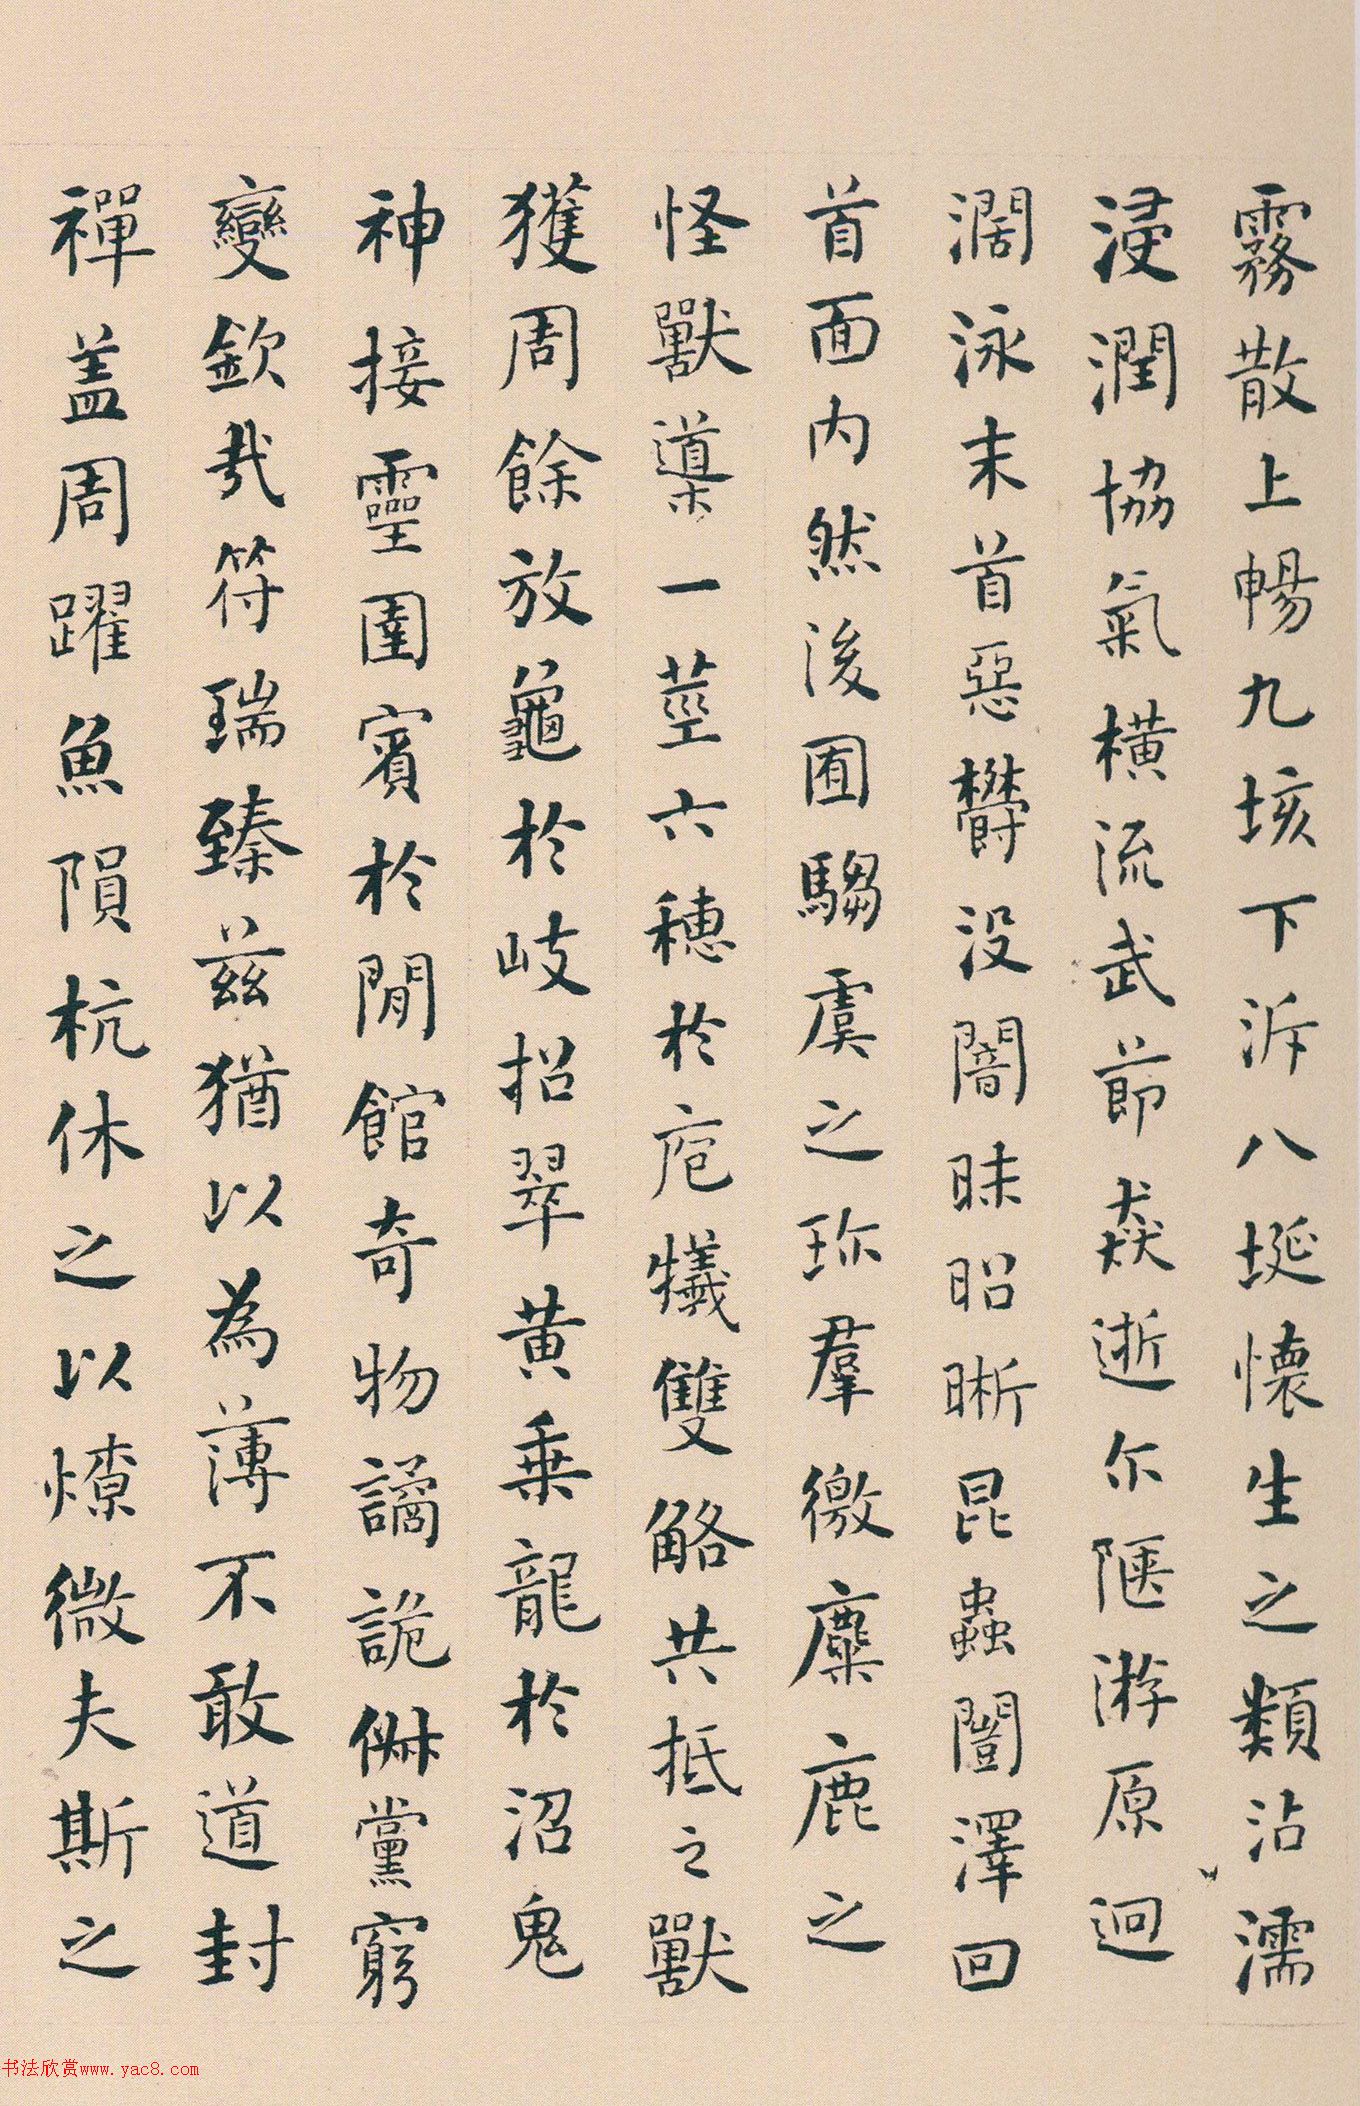 霧散上暢九垓下泝八埏懷生之類沾濡
浸潤協氣橫流武節猋逝尒陿游原迥
濶泳末首惡欝没闇昧昭晰昆蟲闓澤回
首面内然後囿騶虞之珎羣徼麋鹿之
怪獸䆃一莖六穗於庖犧雙觡共抵之獸
獲周餘放龜於岐招翠黄乗龍於沼鬼
神接靈圉賓於閒館奇物譎詭俶黨窮
變欽哉符瑞臻兹猶以為薄不敢道封
禪盖周躍魚隕杭休之以燎微夫斯之
书法欣赏www.yac8.com